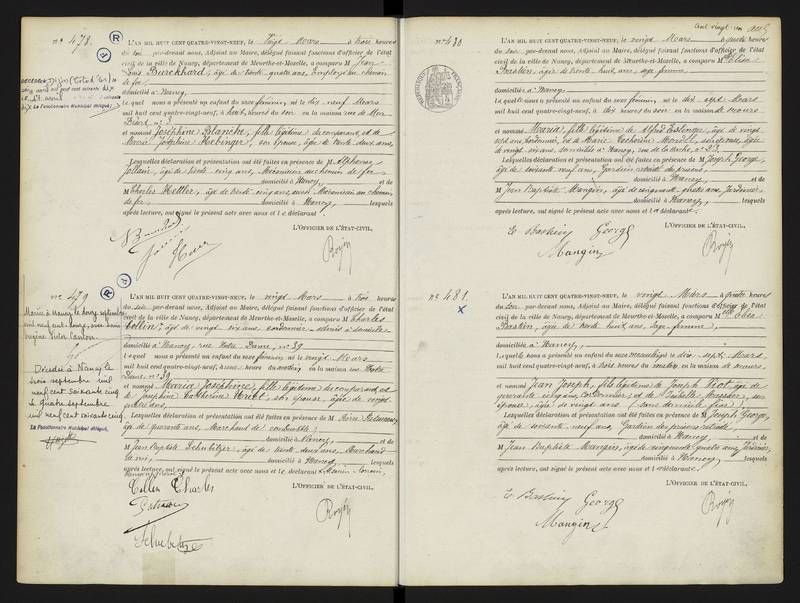 Nº 478.
L'AN MIL HUIT CENT QUATRE-VINGT-NEUF, le vingt Mars à trois heures
du soir par-devant nous, Adjoint au Maire, délégué faisant fonctions d'officier de l'état
civil de la ville de Nancy, département de Meurthe-et-Moselle, a comparu M Jean
Louis Burckhard, âgé de trente quatre ans Employé au chemin
de fer
domicilié à Nancy
lequel nous a présenté un enfant du sexe féminin, né le dix neuf Mars
mil huit cent quatre-vingt-neuf, à heures du soir en la maison rue de Mon
et nommé Joséphine Blanche, fille légitime du comparant et de
Maria Joséphine son épouse, âgée de trente deux ans,
Lesquelles déclaration et présentation ont été faites en présence de M Alphonse
âgé de trente cinq ans, Mécanicien au chemin de fer
domicilié à Nancy, et de
M Charles Mettler, âgé de trente cinq ans, aussi Mécanicien au chemin
de fer domicilié à Nancy, lesquels
après lecture, ont signé le présent acte avec nous et le déclarant.
L'OFFICIER DE L'ÉTAT-CIVIL,
Le Fonctionnaire Municipal délégué,
R
R
Nº 479
L'AN MIL HUIT CENT QUATRE-VINGT-NEUF, le vingt Mars à trois heures
du soir par-devant nous, Adjoint au Maire, délégué faisant fonctions d'officier de l'état
civil de la ville de Nancy, département de Meurthe-et-Moselle, a comparu M Charles
Collin, âgé de vingt six ans cordonnier
domicilié à Nancy, rue Notre Dame, nº 39
lequel nous a présenté un enfant du sexe féminin né le vingt Mars
mil huit cent quatre-vingt-neuf, à heures du matin en la maison rue Notre
Dame, nº 39
et nommé Maria Joséphine, fille légitime du comparant et
de Joséphine Catherine son épouse, âgée de vingt
ans,
Lesquelles déclaration et présentation ont été faites en présence de M
âgé de quarante ans, Marchand de combustible,
domicilié à Nancy, et de
M Jean Baptiste Schubetzer, âgé de trente deux ans, Marchand
domicilié à Nancy, lesquels
après lecture, ont signé le présent acte avec nous et le déclarant
Collin Charles
L'OFFICIER DE L'ÉTAT-CIVIL,
Marié à Nancy le douze septembre
mil neuf cent douze, avec
Décédée à Nancy le
trois septembre mil
neuf cent soixante cinq
Le quatre septembre
mil neuf cent soixante cinq
Le Fonctionnaire Municipal délégué,
Cent vingt un
Nº 480
L'AN MIL HUIT CENT QUATRE-VINGT-NEUF, le vingt Mars à quatre heures
du soir par-devant nous, Adjoint au Maire, délégué faisant fonctions d'officier de l'état
civil de la ville de Nancy, département de Meurthe-et-Moselle, a comparu Elisa
Bastien, âgée de trente huit ans, sage femme,
domiciliée à Nancy,
laquelle nous a présenté un enfant du sexe féminin, né le dix sept Mars
mil huit cent quatre-vingt-neuf, à dix heures du soir en la maison de secours
et nommé Maria, fille légitime de Alfred âgé de vingt
sept ans, Cordonnier, et de Marie Catherine son épouse, âgée
de vingt six ans,
Lesquelles déclaration et présentation ont été faites en présence de M Joseph George,
âgé de soixante neuf ans, Gardien retraité des prisons,
domicilié à Nancy, et de
M Jean Baptiste Mangin, âgé de cinquante quatre ans, Jardinier
domicilié à Nancy, lesquels
après lecture, ont signé le présent acte avec nous et la déclarante.
L'OFFICIER DE L'ÉTAT-CIVIL,
E Bastien George
Mangin
Nº 481.
X
L'AN MIL HUIT CENT QUATRE-VINGT-NEUF, le vingt Mars à quatre heures
du soir par-devant nous, Adjoint au Maire, délégué faisant fonctions d'officier de l'état
civil de la ville de Nancy, département de Meurthe-et-Moselle, a comparu Elisa
Bastien, âgée de trente huit ans, sage femme,
domiciliée à Nancy,
laquelle nous a présenté un enfant du sexe masculin né le dix sept Mars
mil huit cent quatre-vingt-neuf, à trois heures du matin en la maison de secours
et nommé Jean Joseph, fils légitime de Joseph âgé de
quarante cinq ans, Cordonnier, et de son
épouse, âgée de vingt ans,
Lesquelles déclaration et présentation ont été faites en présence de M Joseph George,
âgé de soixante neuf ans, Gardien des prisons retraité,
domicilié à Nancy, et de
M Jean Baptiste Mangin, âgé de cinquante quatre ans, Jardinier,
domicilié à Nancy, lesquels
après lecture, ont signé le présent acte avec nous et la déclarante.
L'OFFICIER DE L'ÉTAT-CIVIL,
E Bastien George
Mangin